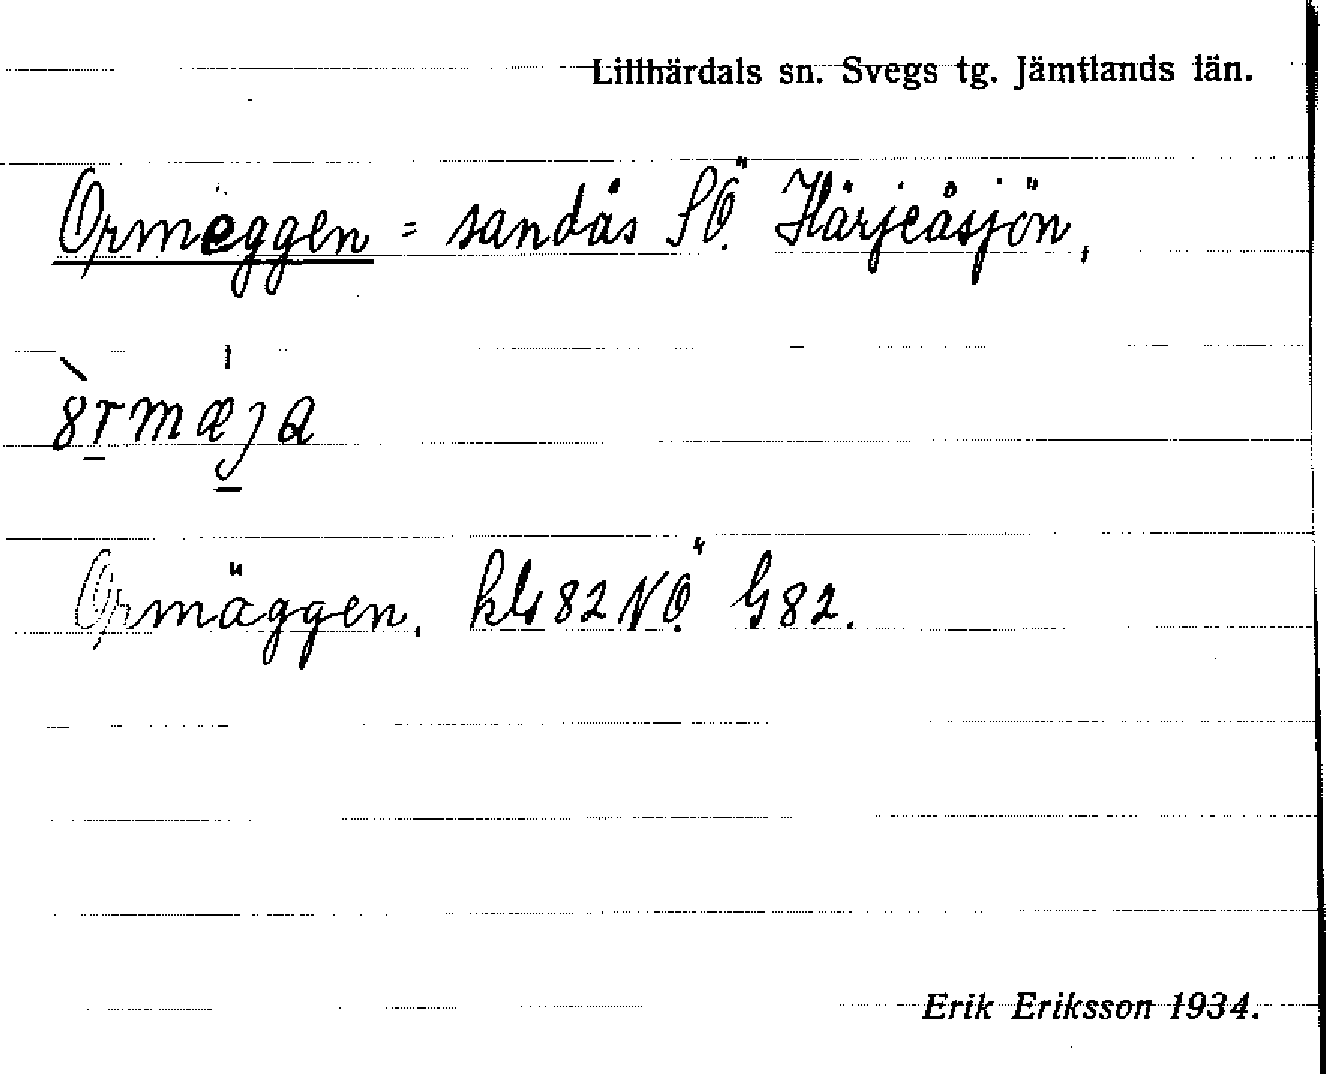 Lillhärdals sn. Svegs tg. Jämtlands län.
Ormeggen = sandås SÖ. Härjeåsjön,
Ormäggen, kls 82 NÖ. G82.
Erik Eriksson 1934.